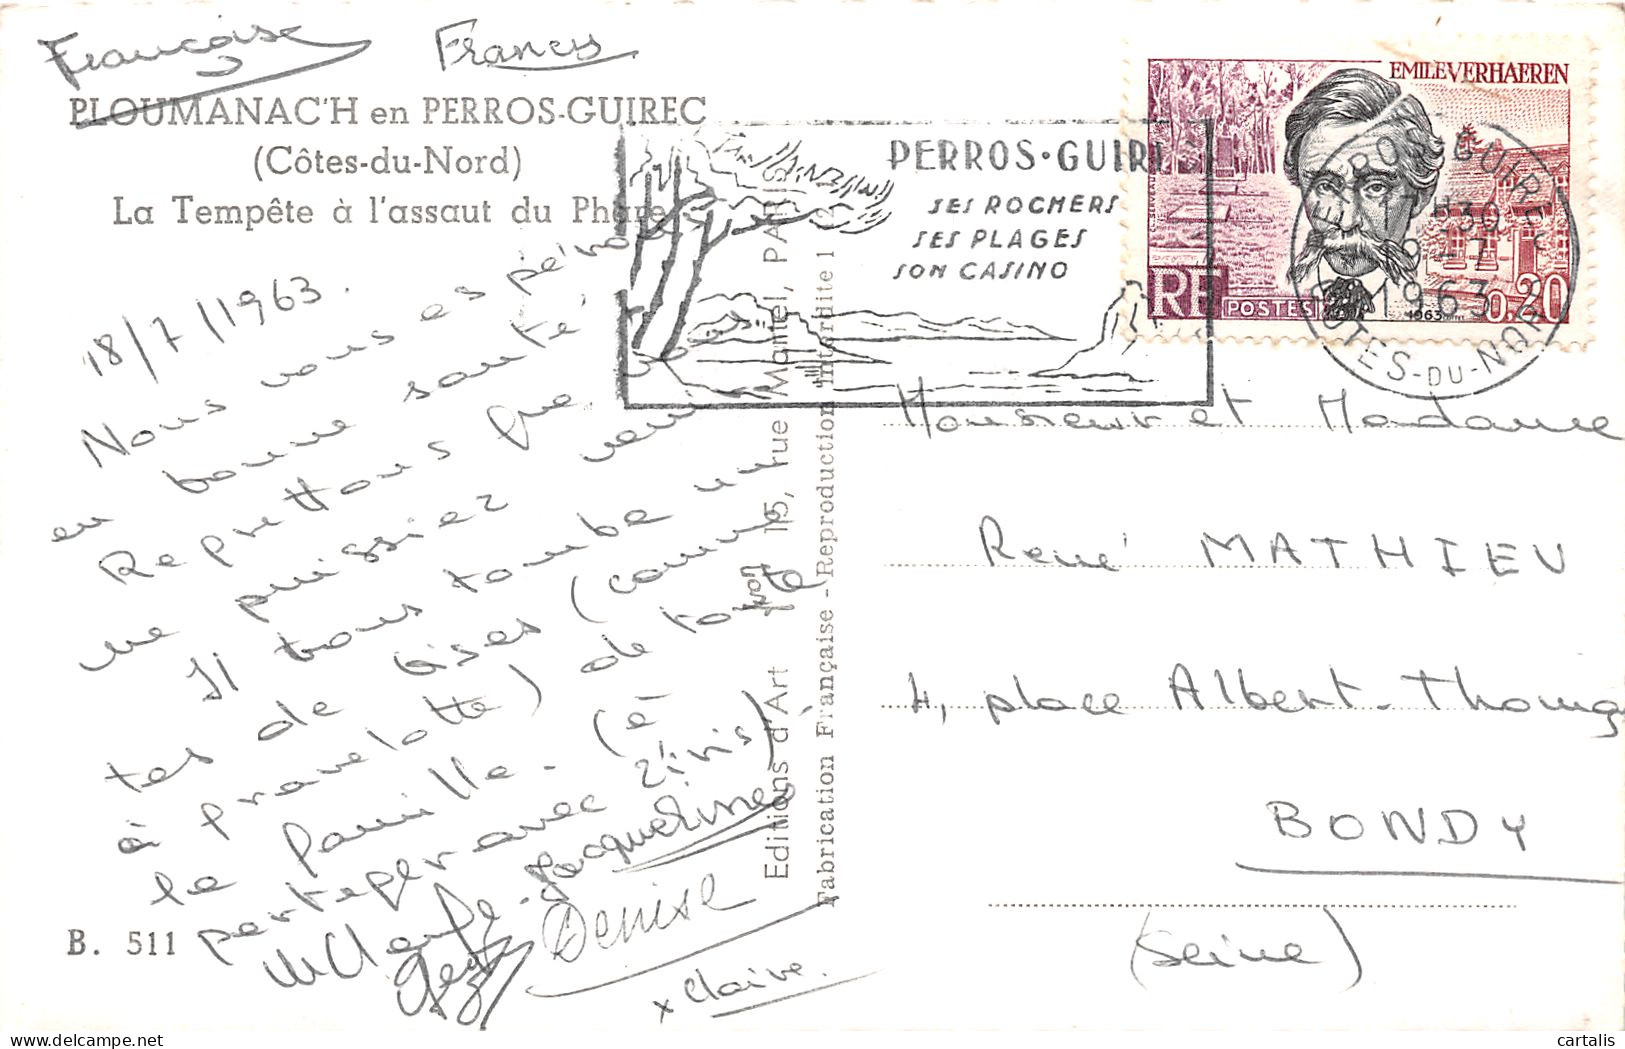 Françoise Francys
PLOUMANAC'H en PERROS-GUIREC
(Côtes-du-Nord)
La Tempête à l'assaut du Phare
18/7/1963.
Nous vous espérons
en bonne santé,
Regrettons que vous
ne puissiez venir
Il vous tombe un
tas de bises (comme
à Gravelotte) de toute
la famille. (à
partager avec
Jacqueline
Denise
x Claire.
B. 511
Editions d'Art Yvon 15, rue Martel, PARIS
Fabrication Française - Reproduction interdite
PERROS-GUIREC
SES ROCHERS
SES PLAGES
SON CASINO
EMILE VERHAEREN
RF POSTES 1963 0,20
PERROS-GUIREC
17H30
1963
COTES-DU-NORD
Monsieur et Madame
René MATHIEU
4, place Albert-Thomas
BONDY
(Seine)
cartalis